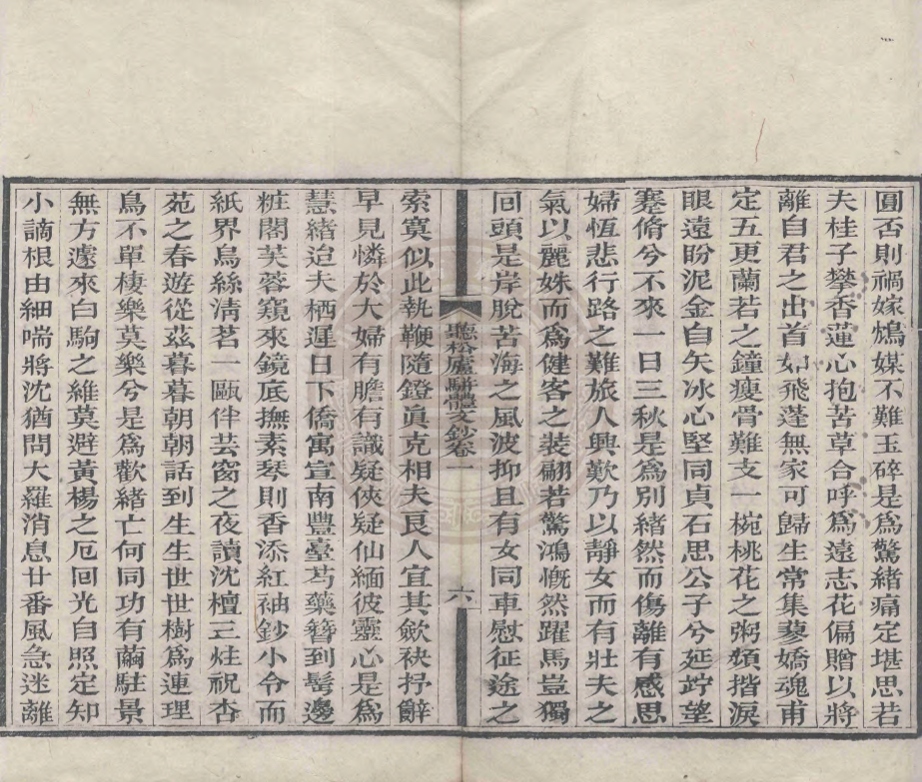 圓否則禍嫁鴆媒不難玉碎是爲驚緒痛定堪思若
夫桂子攀香蓮心抱苦草合呼爲遠志花偏贈以將
離自君之出首如飛蓬無家可歸生常集蓼嬌魂甫
定五更蘭若之鐘瘦骨難支一椀桃花之粥頻揩淚
眼遠盼泥金自矢冰心堅同貞石思公子兮延竚望
蹇脩兮不來一日三秋是爲別緒然而傷離有感思
婦恆悲行路之難旅人興歎乃以靜女而有壯夫之
氣以麗姝而爲健客之裝翩若驚鴻慨然躍馬豈獨
回頭是岸脫苦海之風波抑且有女同車慰征途之
聽松廬駢體文鈔卷一
六
索寞似此執鞭隨鐙眞克相夫艮人宜其歛袂抒辭
早見憐於大婦有膽有識疑俠疑仙緬彼靈心是爲
慧緒迨夫栖遲日下僑寓宣南豐臺芍藥簪到髩邊
粧閣芙蓉窺來鏡底撫素琴則香添紅袖鈔小令而
紙界烏絲淸茗一甌伴芸窗之夜讀沈檀三炷祝杏
苑之春遊從茲暮暮朝朝話到生生世世樹爲連理
鳥不單棲樂莫樂兮是爲歡緒亡何同功有繭駐景
無方遽來白駒之維莫避黃楊之厄回光自照定知
小謫根由細喘將沈猶問大羅消息廿番風急迷離